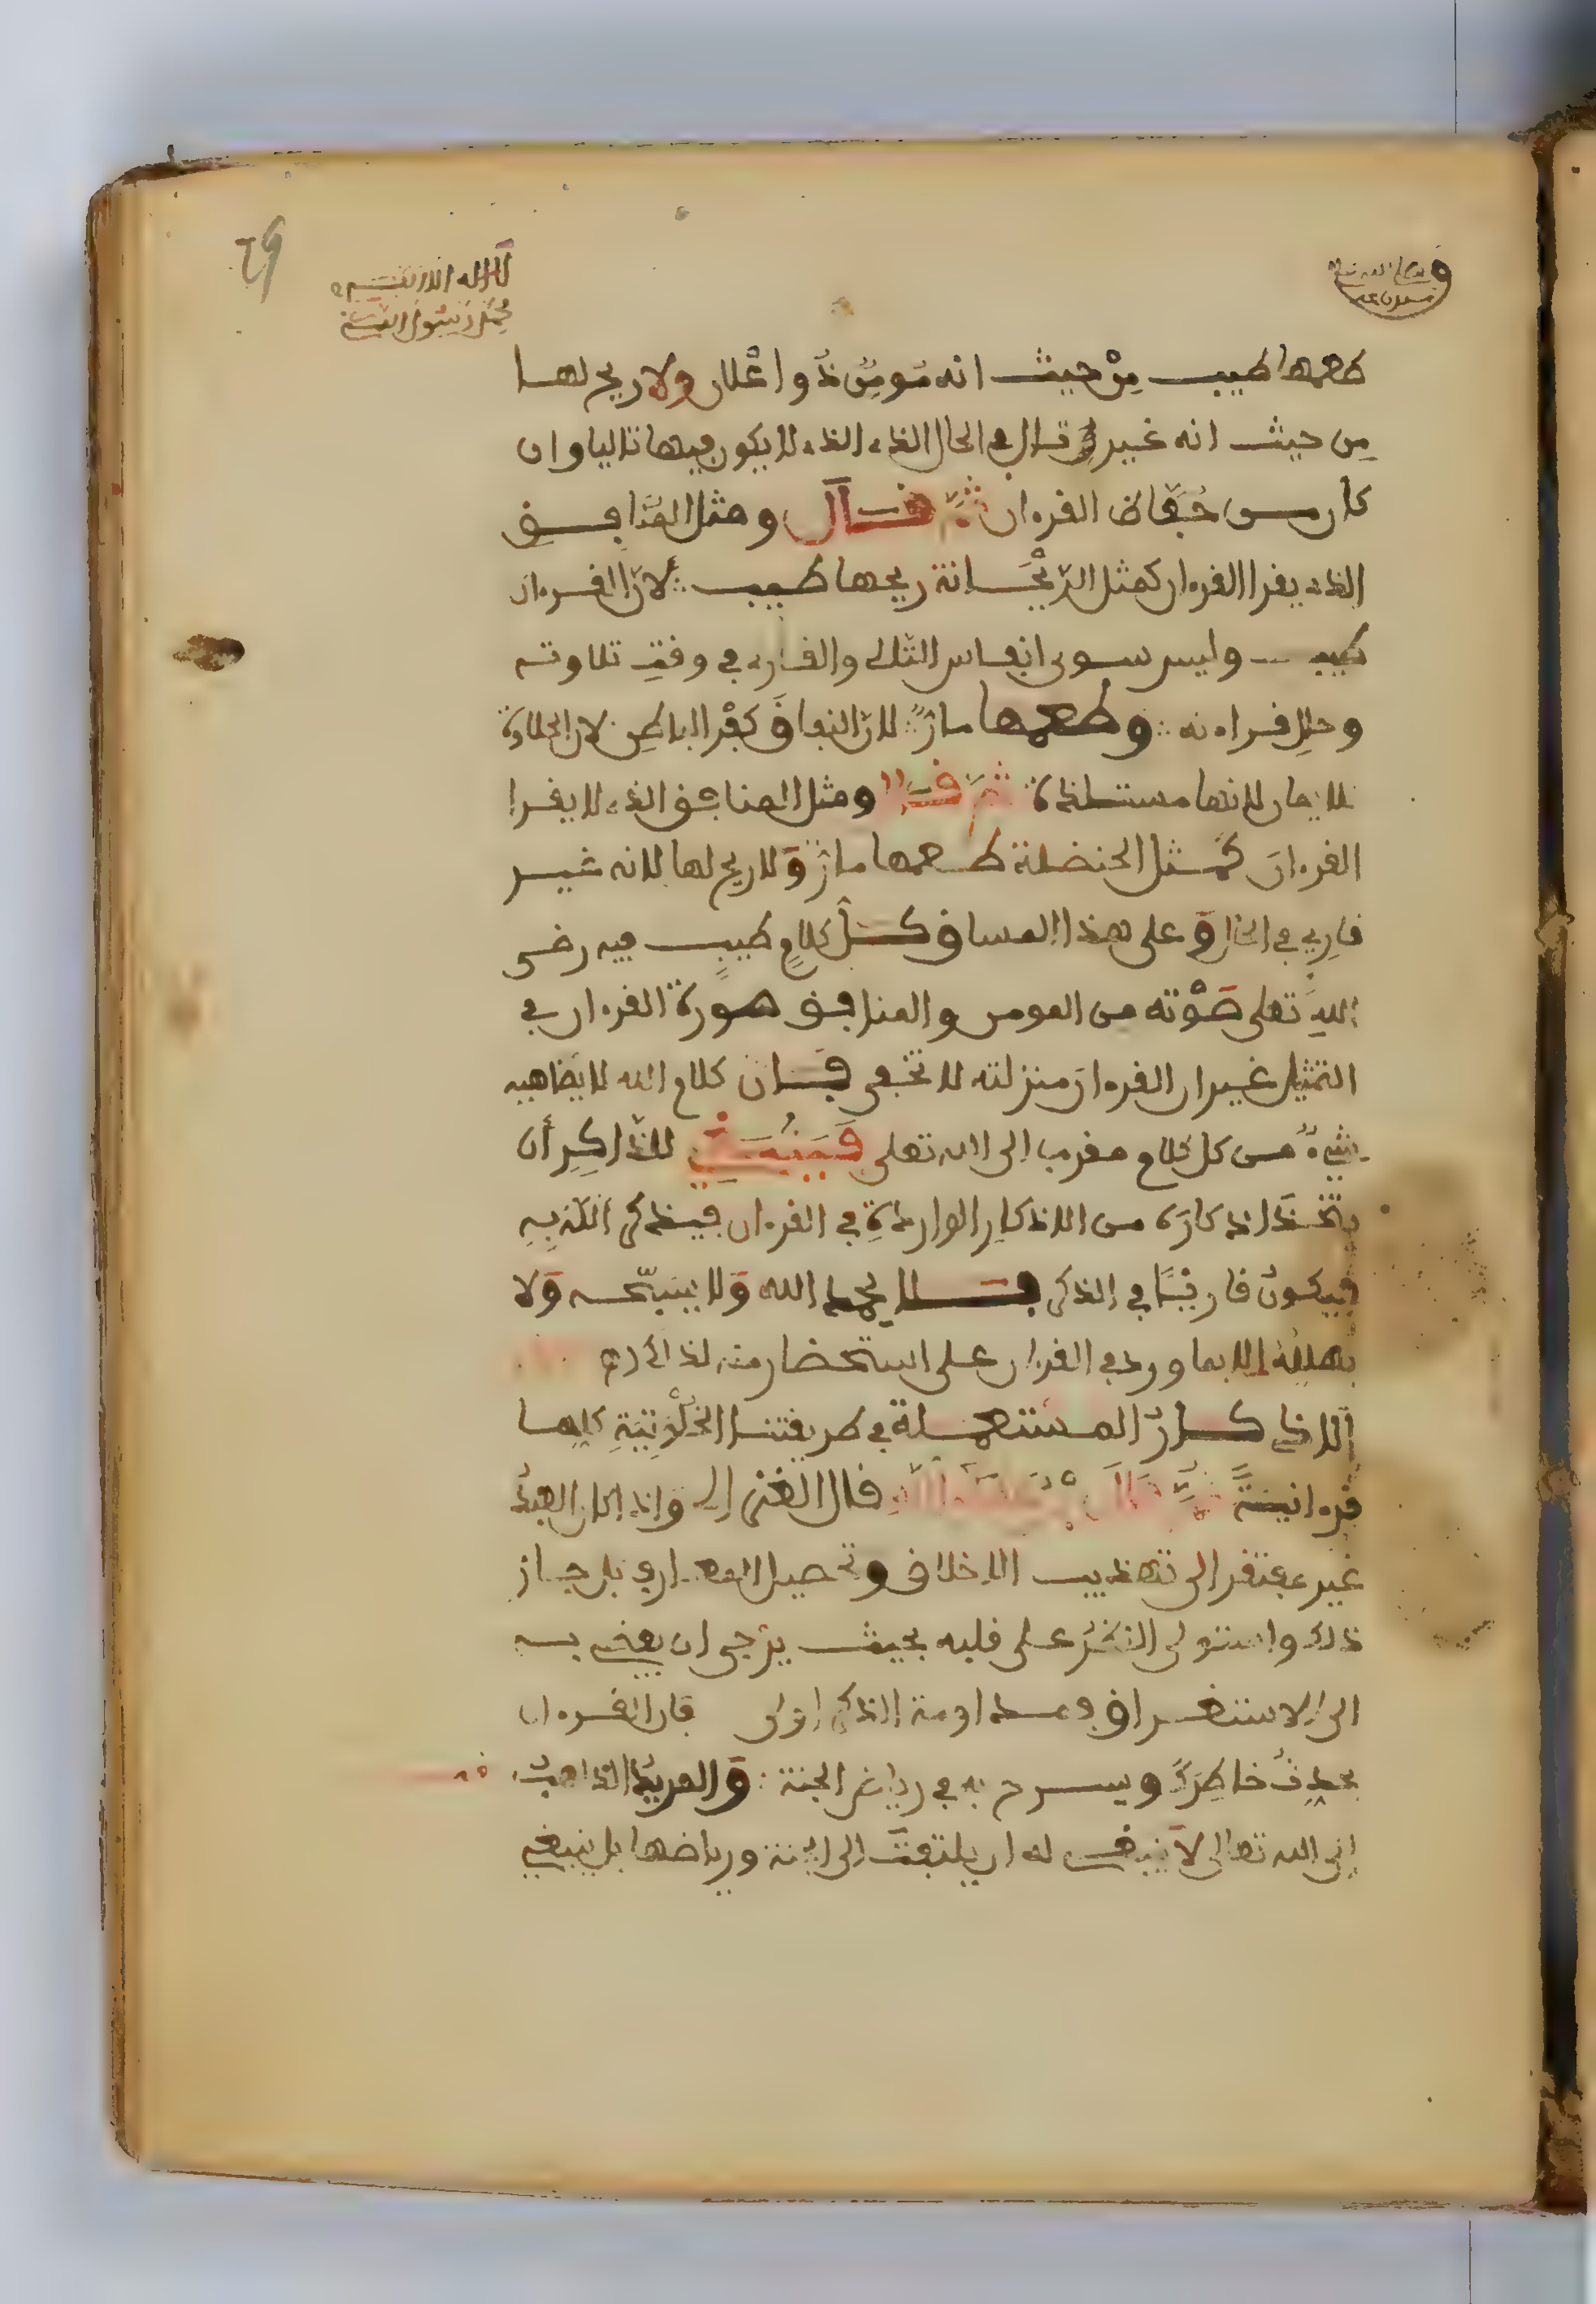 لا اله الا الله
محمد رسول الله
طعمها طيب من حيث انه مومن ذوا ولا ريح لها
من حيث انه غير تال في الحال الذي لا يكون فيها تاليا وان
كان من حفاظ القرءان ثم قال ومثل المنافق
الذي يقرا القرءان كمثل الريحانة ريحها طيب لان القرءان
طيب وليس سوى انفاس التالي والقاري في وقت تلاوته
وحال قراءته وطعمها مر لان النفاق كفر الباطن لان الحلاوة
للايمان لانها مستلذة ثم قال ومثل المنافق الذي لا يقرا
القرءان كمثل الحنضلة طعمها مر ولا ريح لها لانه غير
قاري في الحال وعلى هذا المساق كل كلام طيب فيه رضى
الله تعلى صوته من المومن والمنافق صورة القرءان في
التمثيل غير ان القرءان منزلته لا تخفى فان كلام الله لا يضاهيه
شيء من كل كلام مقرب الى الله تعلى فينبغي للذاكر أن
يتخذ اذكاره من الاذكار الواردة في القرءان فيذكر الله به
فيكون قارئا في الذكر فلا يحمد الله ولا يسبحه ولا
يهلله الا بما ورد في القرءان على استحضار منه لذالك
الاذكار المستعملة في طريقتنا الخلوتية كلها
قرءانية قال الغزالي واذا كان العبد
غير مفتقر الى تهذيب الاخلاق وتحصيل المعارف بل جاز
ذلك واستولى الذكر على قلبه بحيث يرجى ان يفضي به
الى الاستغراق فمداومة الذكر اولى فان القرءان
يجذب خاطره ويسرح به في رياض الجنة والمريد الذاهب
الى الله تعالى لا ينبغي له ان يلتفت الى الجنة ورياضها بل ينبغي